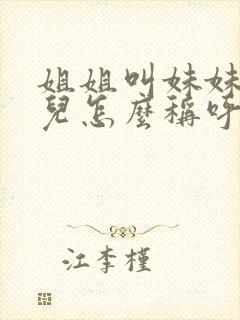 姐姐叫妹妹
兒怎麼稱呼
江李槿